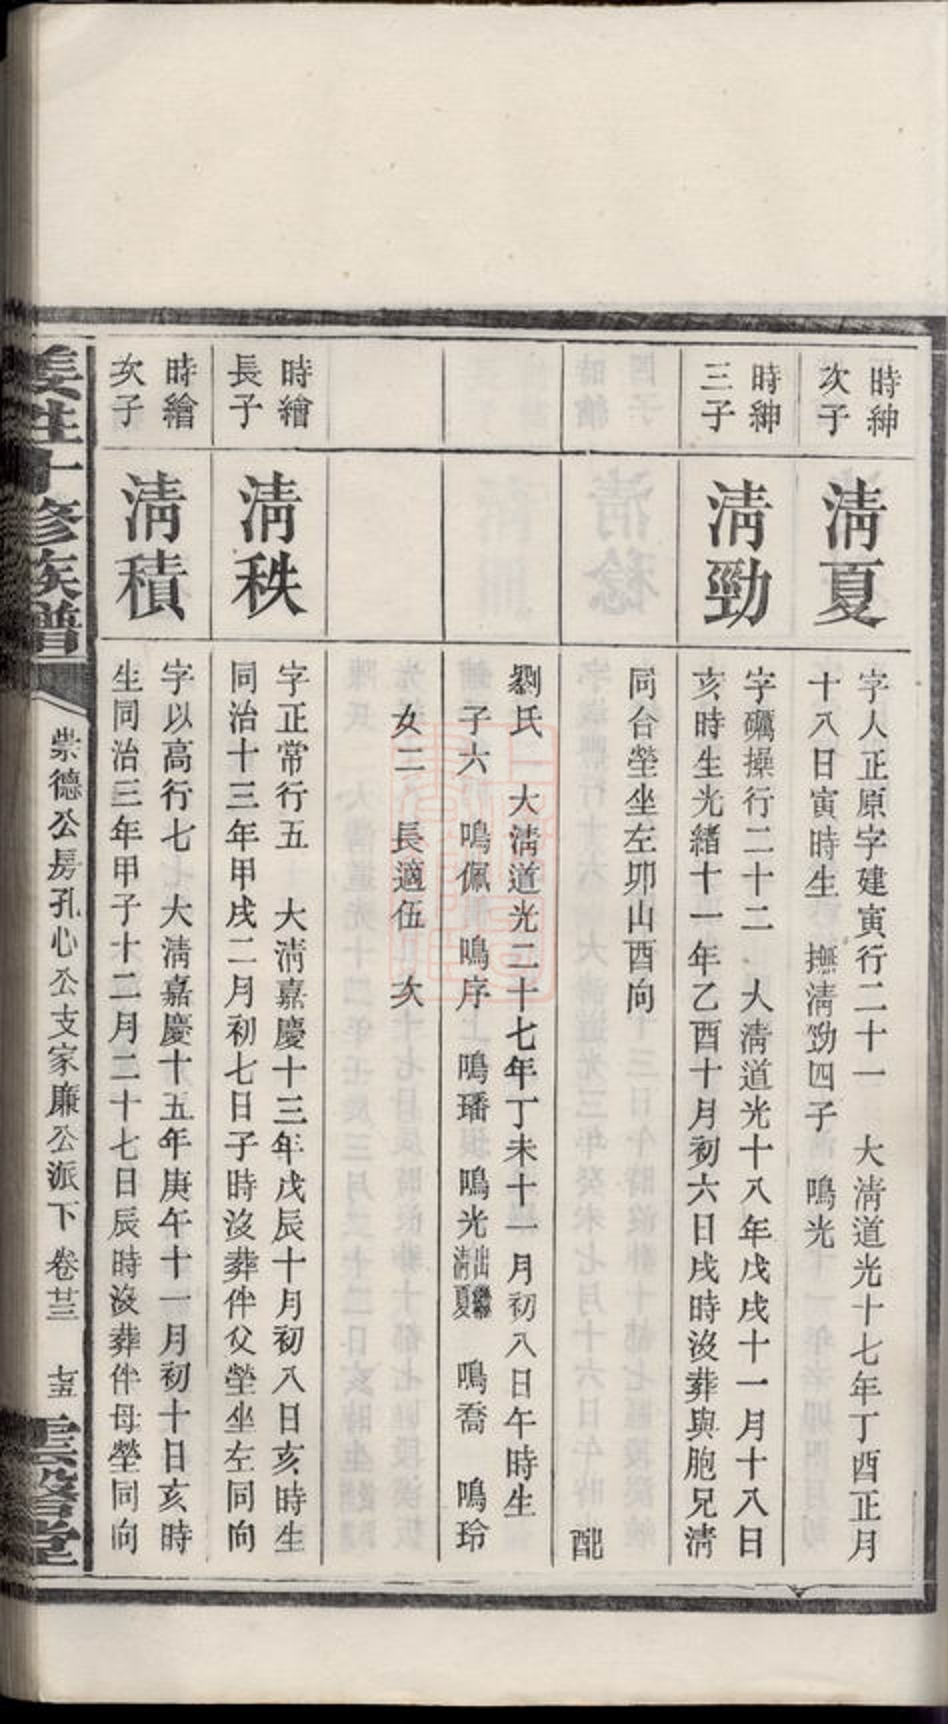 時紳
次子
淸夏
字人正原字建寅行二十一　大淸道光十七年丁酉正月
十八日寅時生　撫淸勁四子　鳴光
時紳
三子
淸勁
字礪操行二十二　大淸道光十八年戊戌十一月十八日
亥時生光緒十一年乙酉十月初六日戌時沒葬與胞兄淸
同台塋坐左卯山酉向
配
劉氏　大淸道光二十七年丁未十一月初八日午時生
子六　鳴佩　鳴序　鳴璠　鳴光出繼淸夏　鳴喬　鳴玲
女二　長適伍　次
時繪
長子
淸秩
字正常行五　大淸嘉慶十三年戊辰十月初八日亥時生
同治十三年甲戌二月初七日子時沒葬伴父塋坐左同向
時繪
次子
淸積
字以高行七　大淸嘉慶十五年庚午十一月初十日亥時
生同治三年甲子十二月二十七日辰時沒葬伴母塋同向
姜姓十修族譜
崇德公房孔心公支家廉公派下　卷廿三　七五
雲磐堂